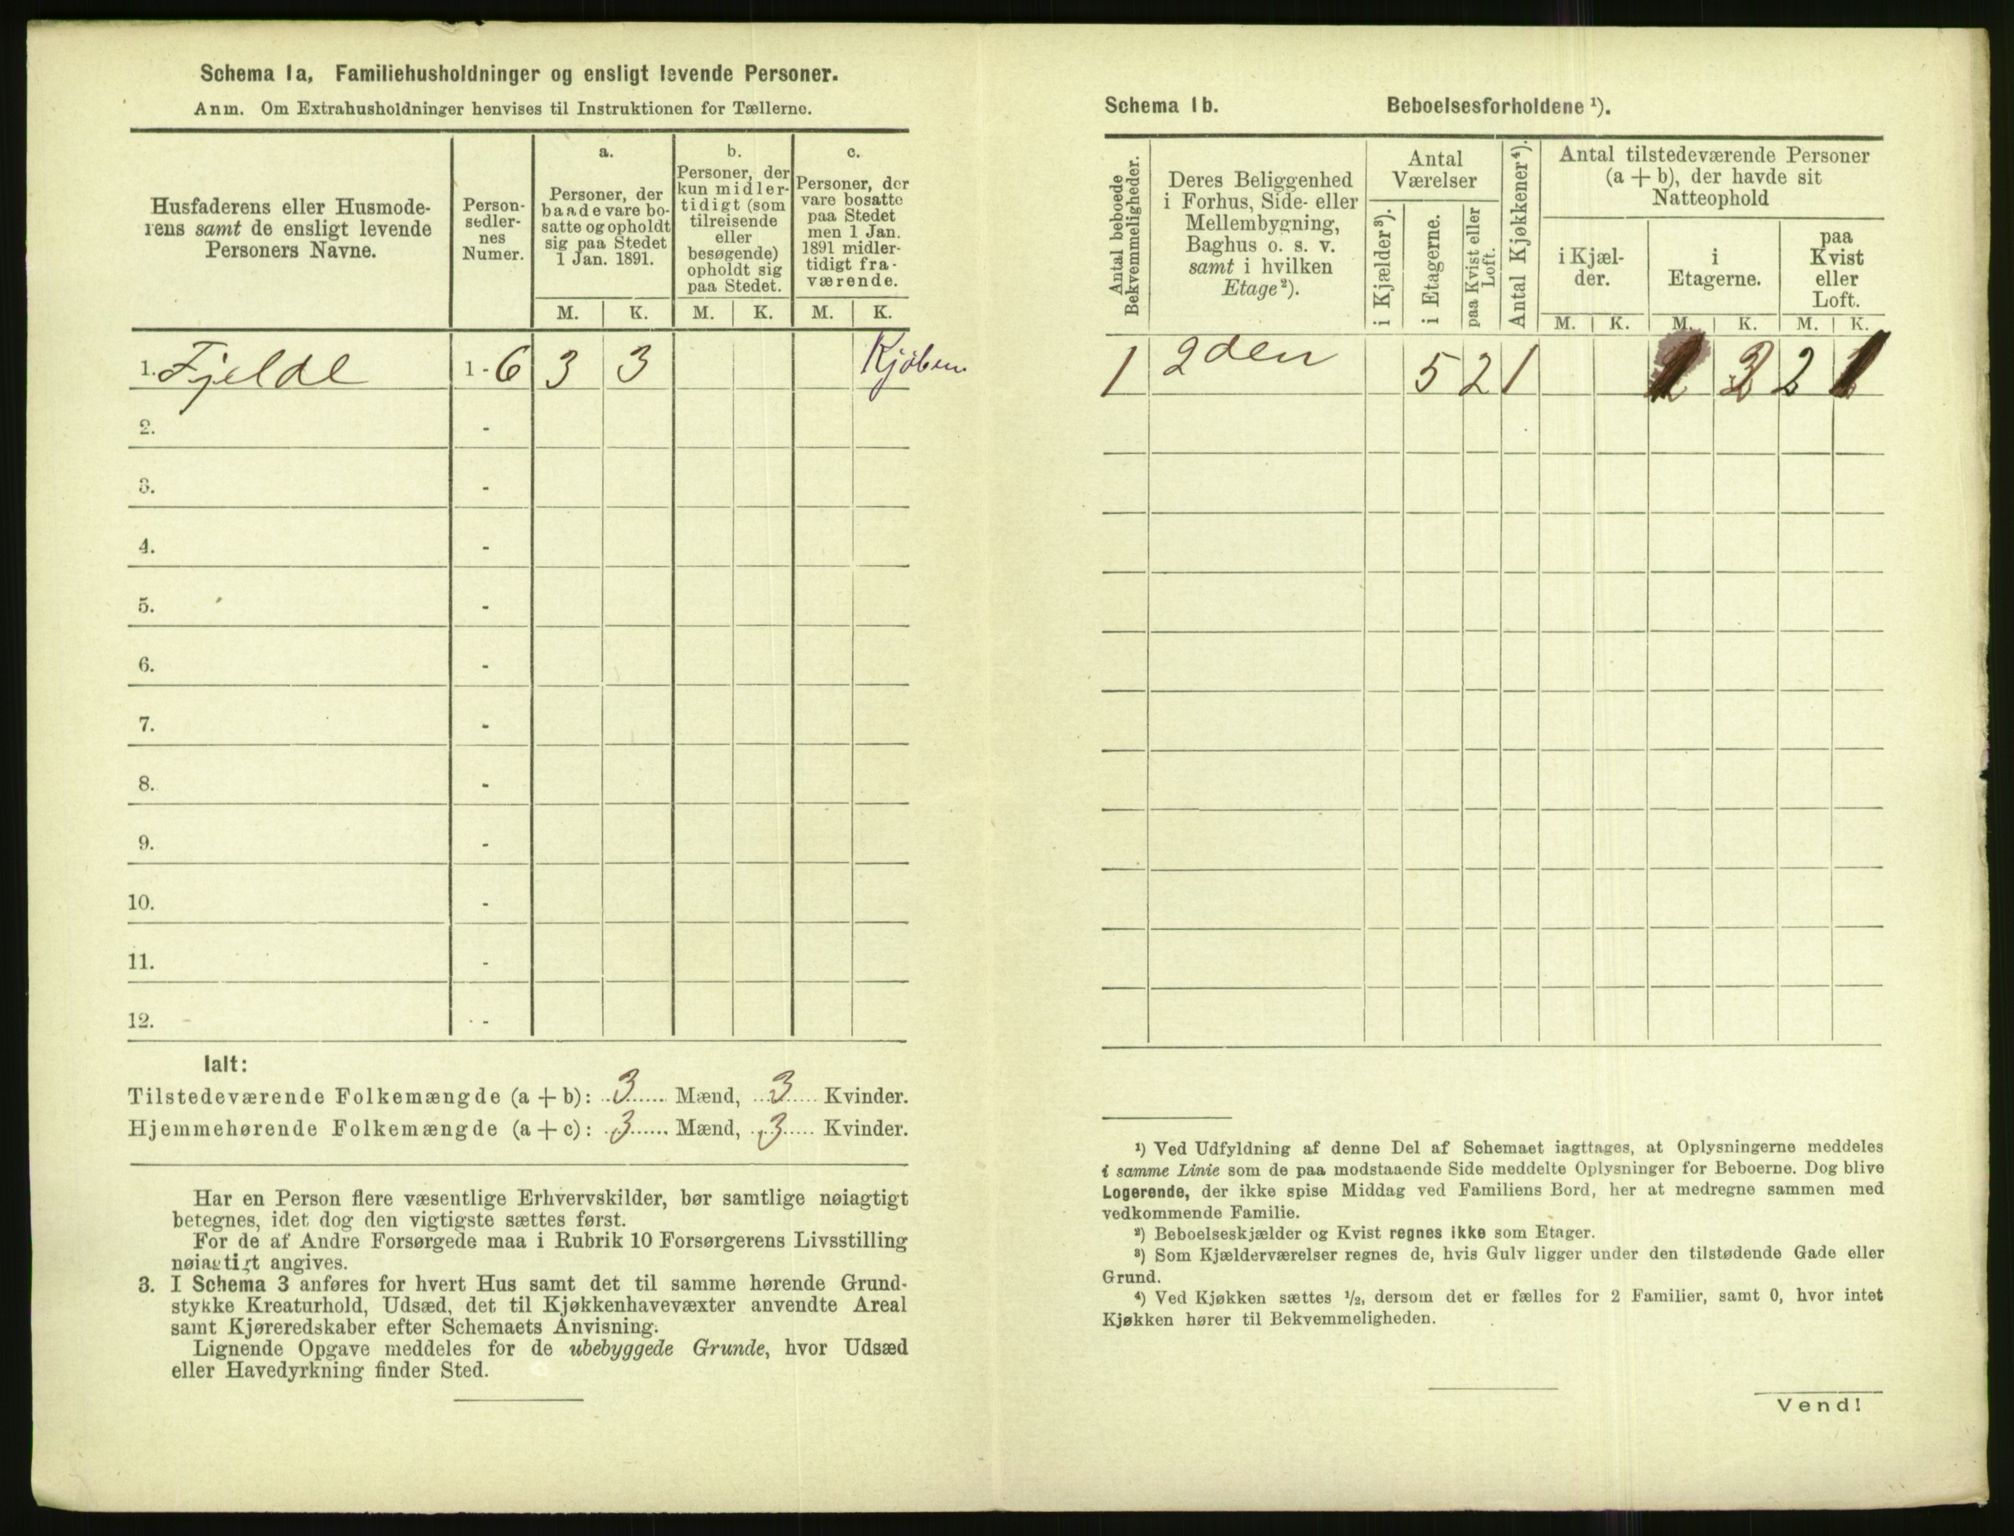 Schema 1a, Familiehusholdninger og ensligt levende Personer.
Anm. Om Extrahusholdninger henvises til Instruktionen for Tællerne.
Husfaderens eller Husmode-
rens samt de ensligt levende
Personers Navne.
Person-
sedler-
nes
Numer.
a.
Personer, der
baade vare bo-
satte og opholdt
sig paa Stedet
1 Jan. 1891.
b.
Personer, der
kun midler-
tidigt (som
tilreisende
eller
besøgende)
opholdt sig
paa Stedet.
c.
Personer, der
vare bosatte
paa Stedet
men 1 Jan.
1891 midler-
tidigt fra-
værende.
M. K. M. K. M. K.
1. Fjelde 1 - 6 3 3 Kjøben
2. -
3. -
4. -
5. -
6. -
7. -
8. -
9. -
10. -
11. -
12. -
Ialt:
Tilstedeværende Folkemængde (a + b): 3 Mænd, 3 Kvinder.
Hjemmehørende Folkemængde (a + c): 3 Mænd, 3 Kvinder.
Har en Person flere væsentlige Erhvervskilder, bør samtlige nøiagtigt
betegnes, idet dog den vigtigste sættes først.
For de af Andre Forsørgede maa i Rubrik 10 Forsørgerens Livsstilling
nøiagtigt angives.
3. I Schema 3 anføres for hvert Hus samt det til samme hørende Grund-
stykke Kreaturhold, Udsæd, det til Kjøkkenhavevæxter anvendte Areal
samt Kjøreredskaber efter Schemaets Anvisning.
Lignende Opgave meddeles for de ubebyggede Grunde, hvor Udsæd
eller Havedyrkning finder Sted.
Schema 1b. Beboelsesforholdene ¹).
Antal beboede
Bekvemmeligheder.
Deres Beliggenhed
i Forhus, Side- eller
Mellembygning,
Baghus o. s. v.
samt i hvilken
Etage²).
Antal
Værelser
i Kjælder³).
i Etagerne.
paa Kvist eller
Loft.
Antal Kjøkkener⁴).
Antal tilstedeværende Personer
(a + b), der havde sit
Natteophold
i Kjæl-
der.
i
Etagerne.
paa
Kvist
eller
Loft.
M. K. M. K. M. K.
1 2den 5 2 1 2
¹) Ved Udfyldning af denne Del af Schemaet iagttages, at Oplysningerne meddeles
i samme Linie som de paa modstaaende Side meddelte Oplysninger for Beboerne. Dog blive
Logerende, der ikke spise Middag ved Familiens Bord, her at medregne sammen med
vedkommende Familie.
²) Beboelseskjælder og Kvist regnes ikke som Etager.
³) Som Kjælderværelser regnes de, hvis Gulv ligger under den tilstødende Gade eller
Grund.
⁴) Ved Kjøkken sættes ¹/₂, dersom det er fælles for 2 Familier, samt 0, hvor intet
Kjøkken hører til Bekvemmeligheden.
Vend!